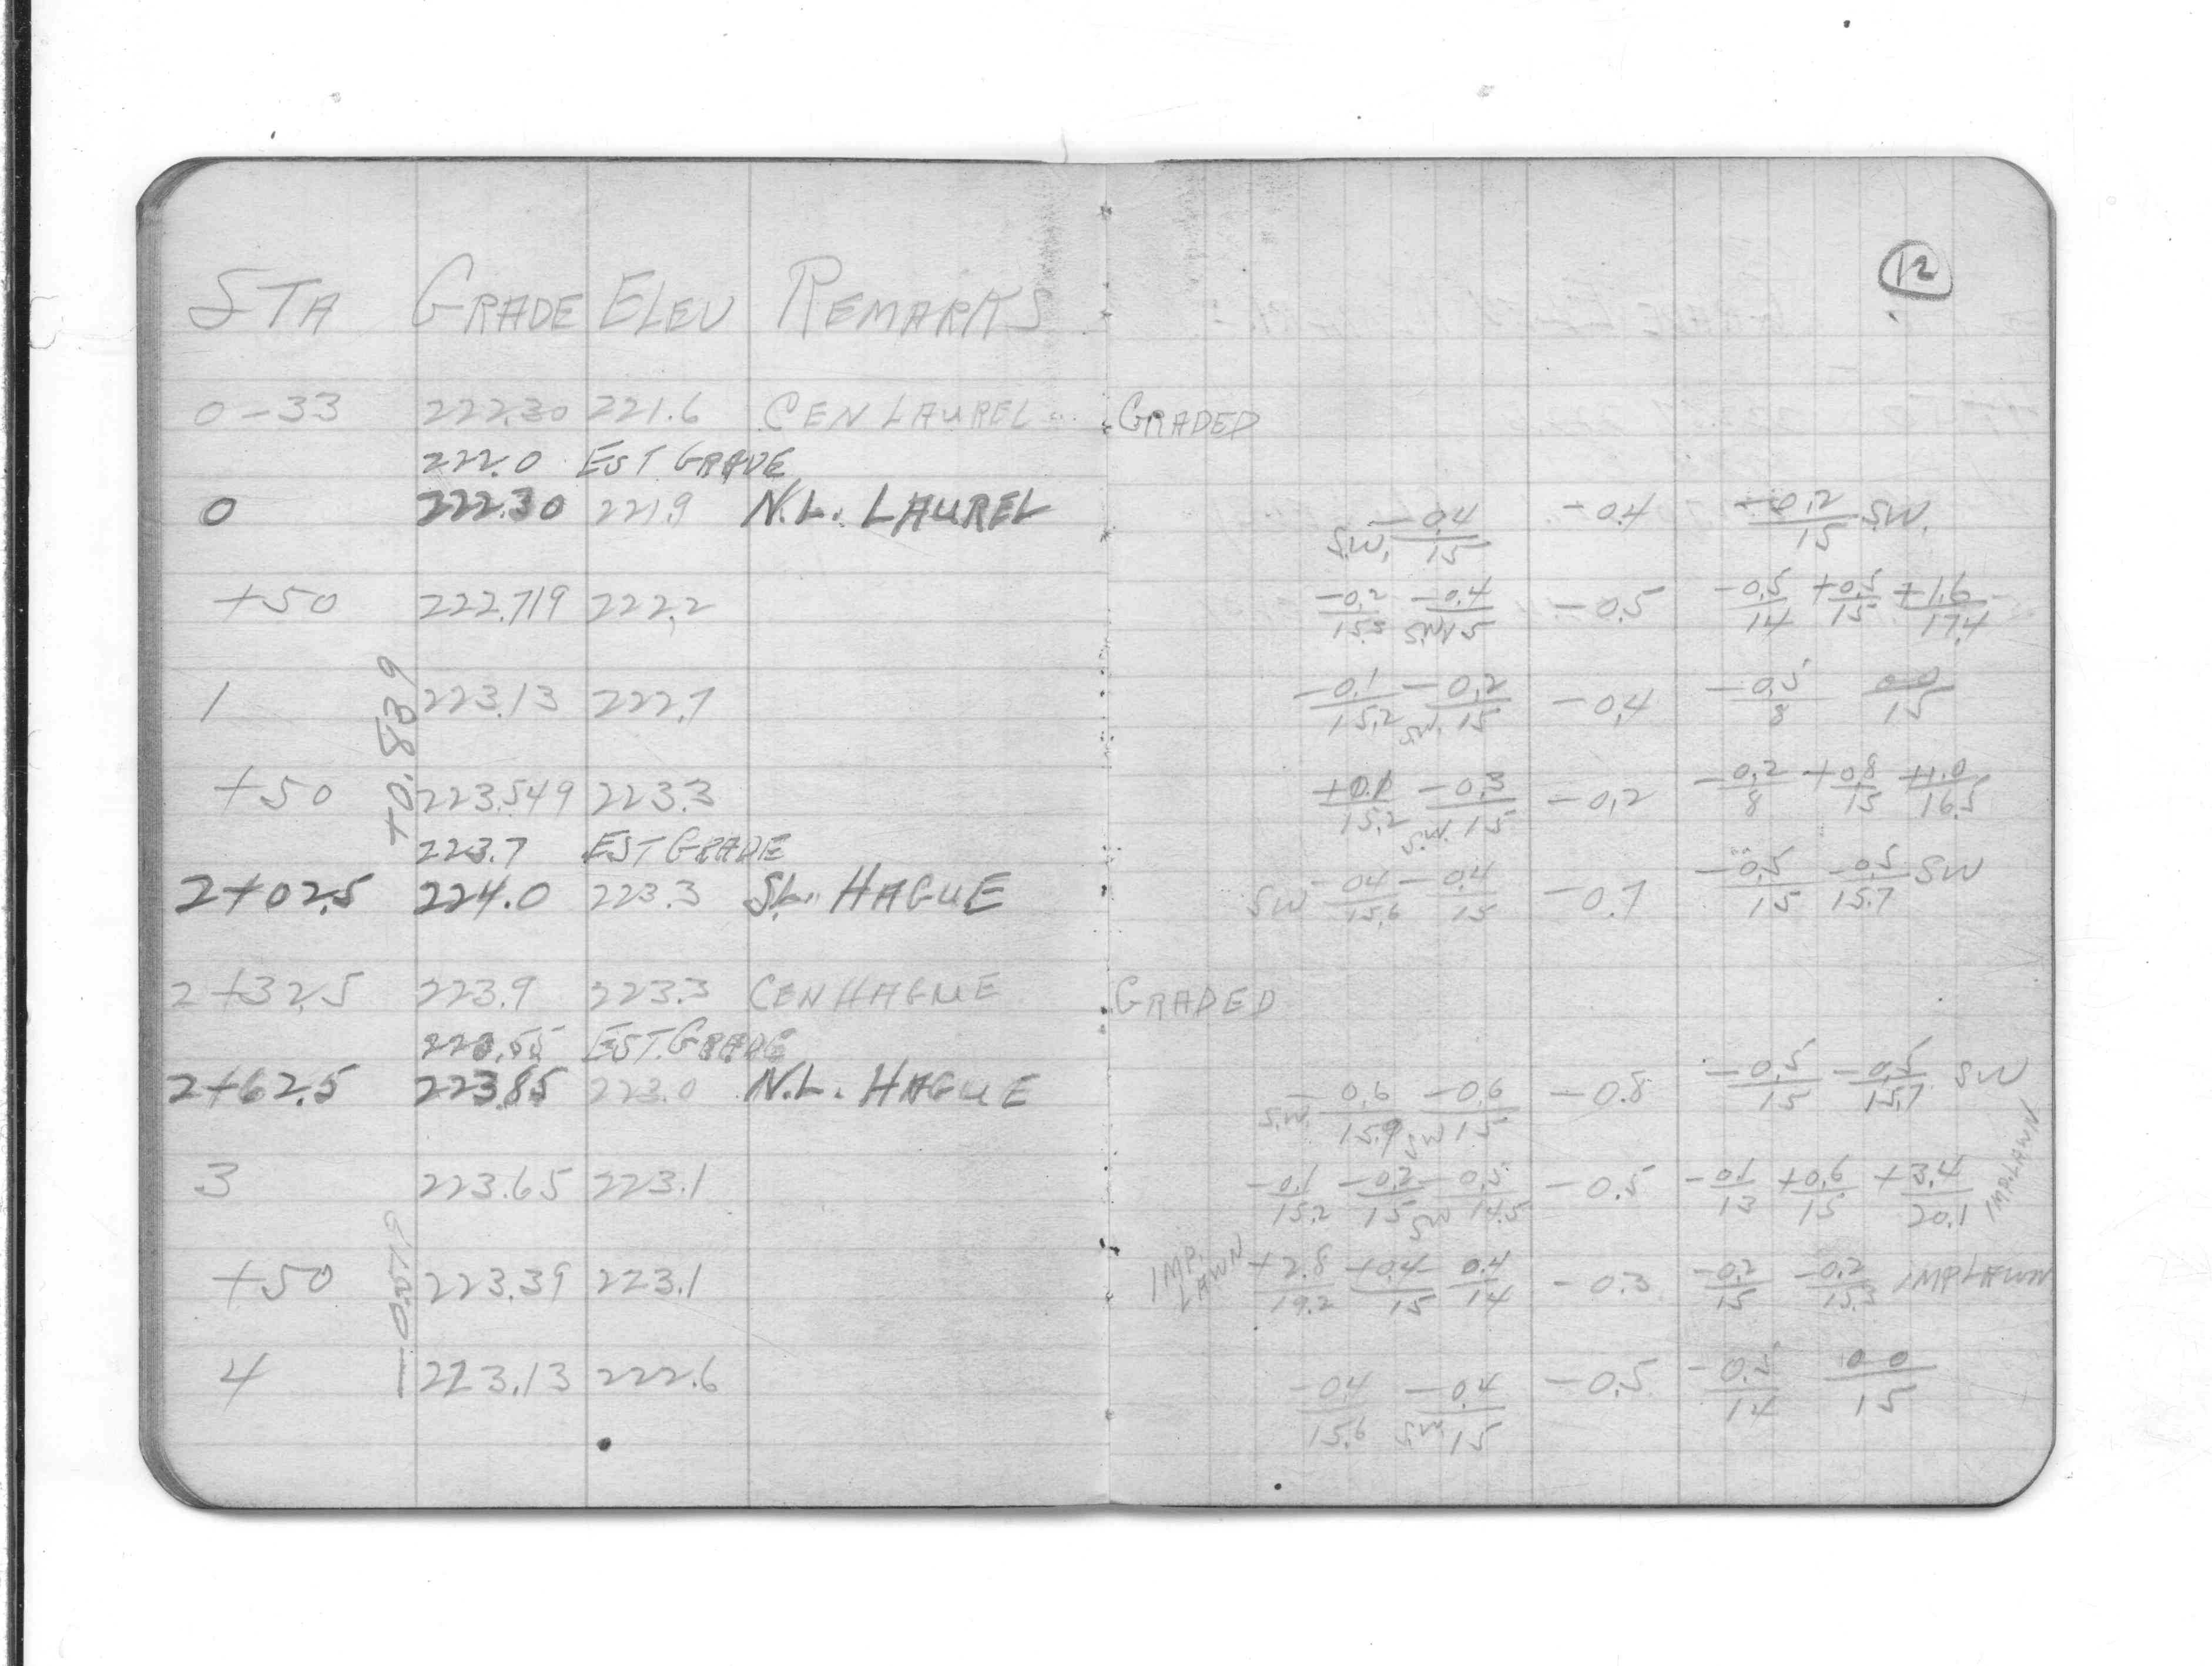 STA GRADE ELEV REMARKS
0-33 222.30 221.6 CEN LAUREL
222.0 EST GRADE
0 222.30 221.9 N.L. LAUREL
+50 222.719 222.2
1 223.13 222.7
+0.839
+50 223.549 223.3
223.7 EST GRADE
2+02.5 224.0 223.3 S.L. HAGUE
2+32.5 223.9 223.3 CEN HAGUE
223.55 EST. GRADE
2+62.5 223.85 223.0 N.L. HAGUE
3 223.65 223.1
+50 223.39 223.1
4 223.13 222.6
12
GRADED
S.W. -0.4/15 -0.4 -0.2/15 S.W.
-0.2/15.3 -0.4/15 S.W. -0.5 -0.5/14 +0.5/15 +1.6/17.4
-0.1/15.2 -0.2/15 S.W. -0.4 -0.5/8 00/15
+0.1/15.2 -0.3/15 S.W. -0.2 -0.2/8 +0.8/15 +1.0/16.5
SW -0.4/15.6 -0.4/15 -0.7 -0.5/15 -0.5/15.7 SW
GRADED
S.W. -0.6/15.9 -0.6/15 SW -0.8 -0.5/15 -0.5/15.7 SW
-0.1/15.2 -0.2/15 -0.5/14.5 SW -0.5 -0.1/13 +0.6/15 +3.4/20.1 IMP. LAWN
IMP. LAWN +2.8/19.2 +0.4/15 -0.4/14 -0.3 -0.2/15 -0.2/15.3 IMP. LAWN
-0.4/15.6 -0.4/15 S.W. -0.5 -0.5/14 00/15